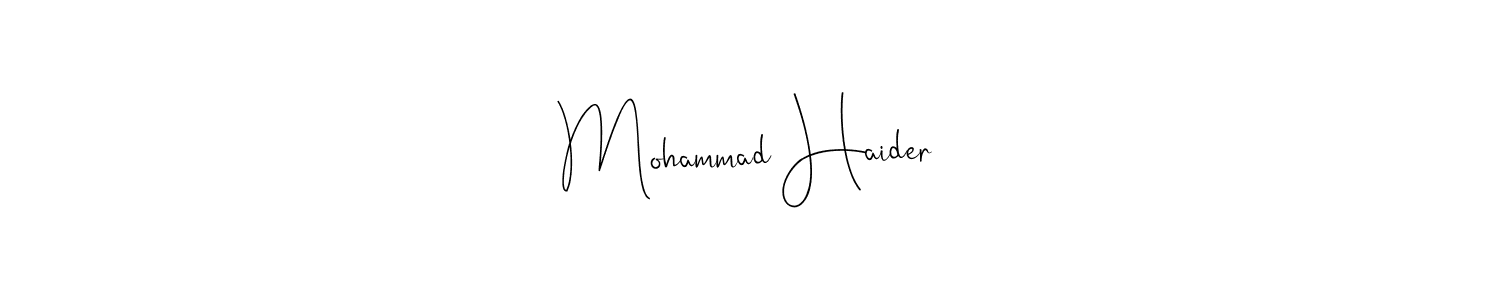 Mohammad Haider